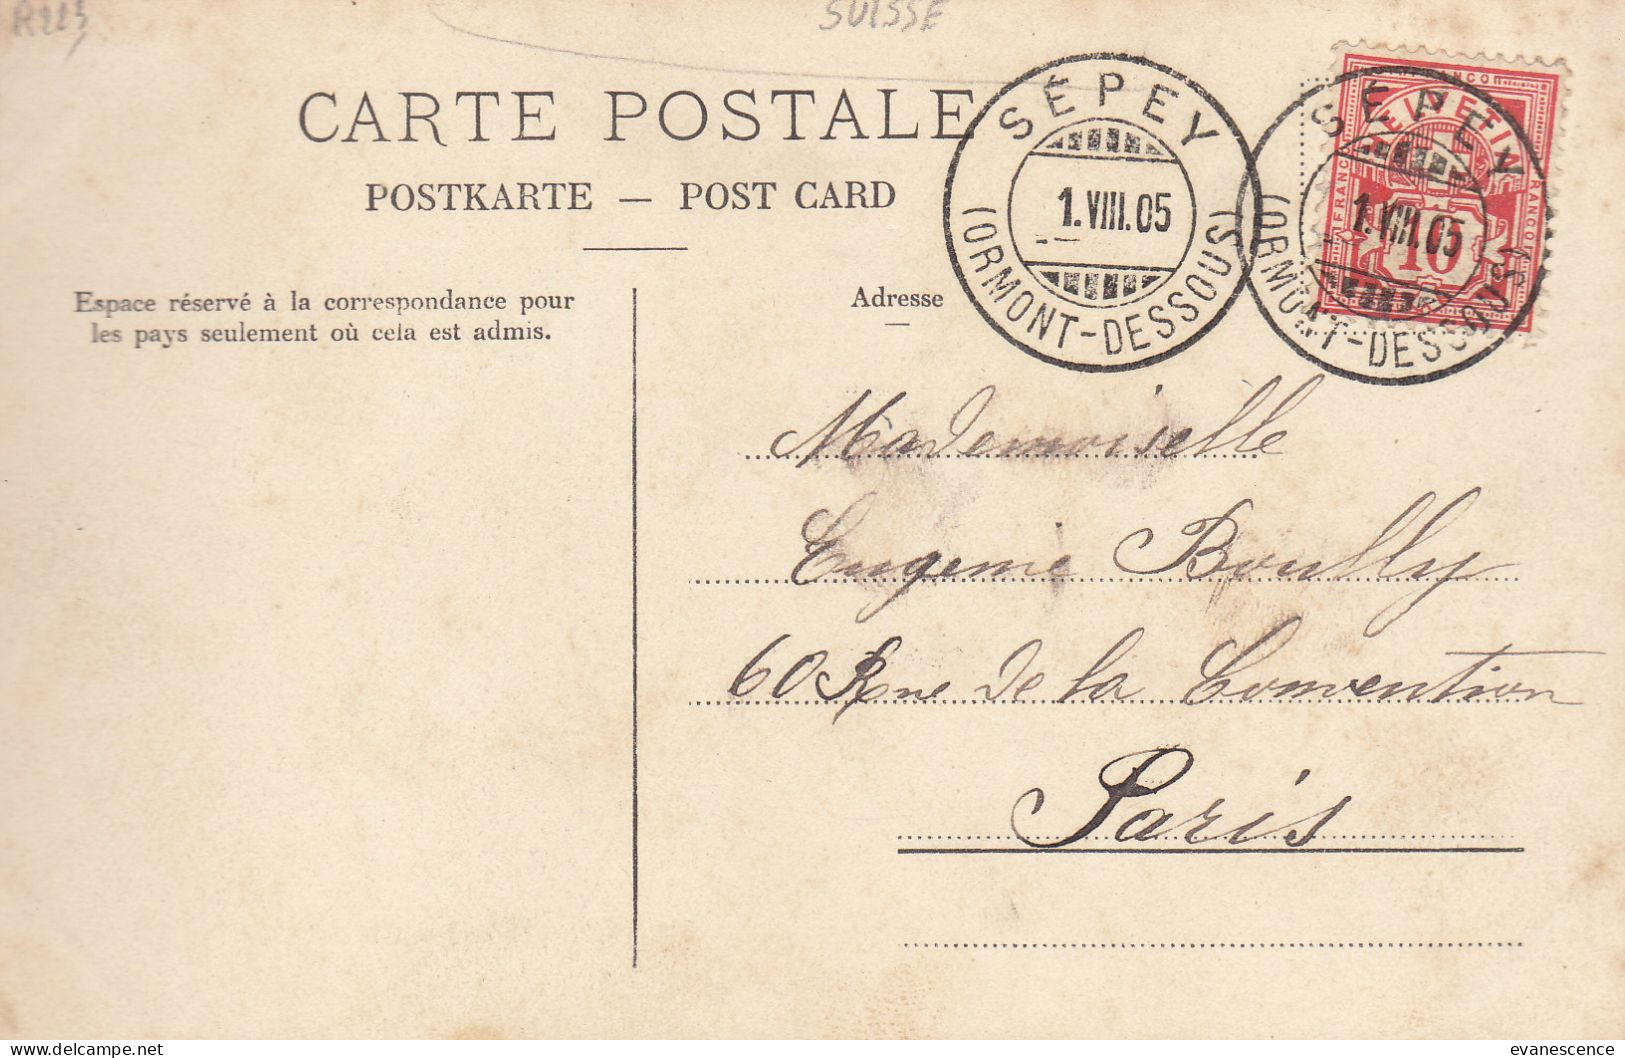 R223
SUISSE
CARTE POSTALE
POSTKARTE — POST CARD
Espace réservé à la correspondance pour
les pays seulement où cela est admis.
Adresse
SÉPEY
1.VIII.05
(ORMONT-DESSOUS)
SÉPEY
1.VIII.05
(ORMONT-DESSOUS)
FRANCO
HELVETIA
10
Mademoiselle
Eugenie Boully
60 Rue de la Convention
Paris
delcampe.net
evanescence